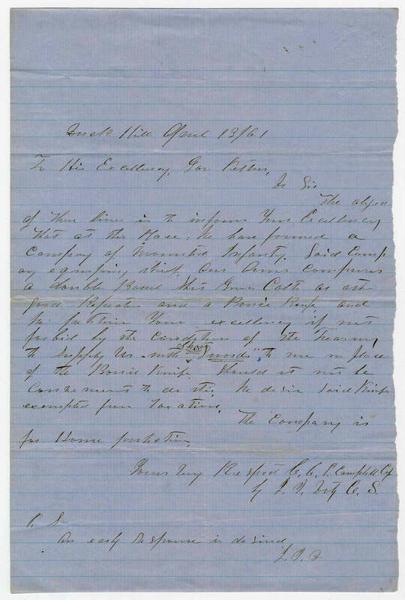 Hill April 13/61
To His Excellency, Gov Pettus,
Dr Sir
The object
of these lines is to inform Your Excellency
that at this Place, we have formed a
Company of Mounted Infantry. Said Comp
any
a double Barrel Shot Gun Colts
good Repeater and a Bowie Knife and
Your excellency if not
forbid by the condition of the Treasury
to supply us with Swords to use in place
of the Bowie Knife. Should it not be
convenient to do this, We desire said Knifes
exempted from taxation.
The Company is
for Home protection
Yours very Respct C. C. P. Campbell Cpt
by J. Q. C. S.
P. S.
An early Response is desired